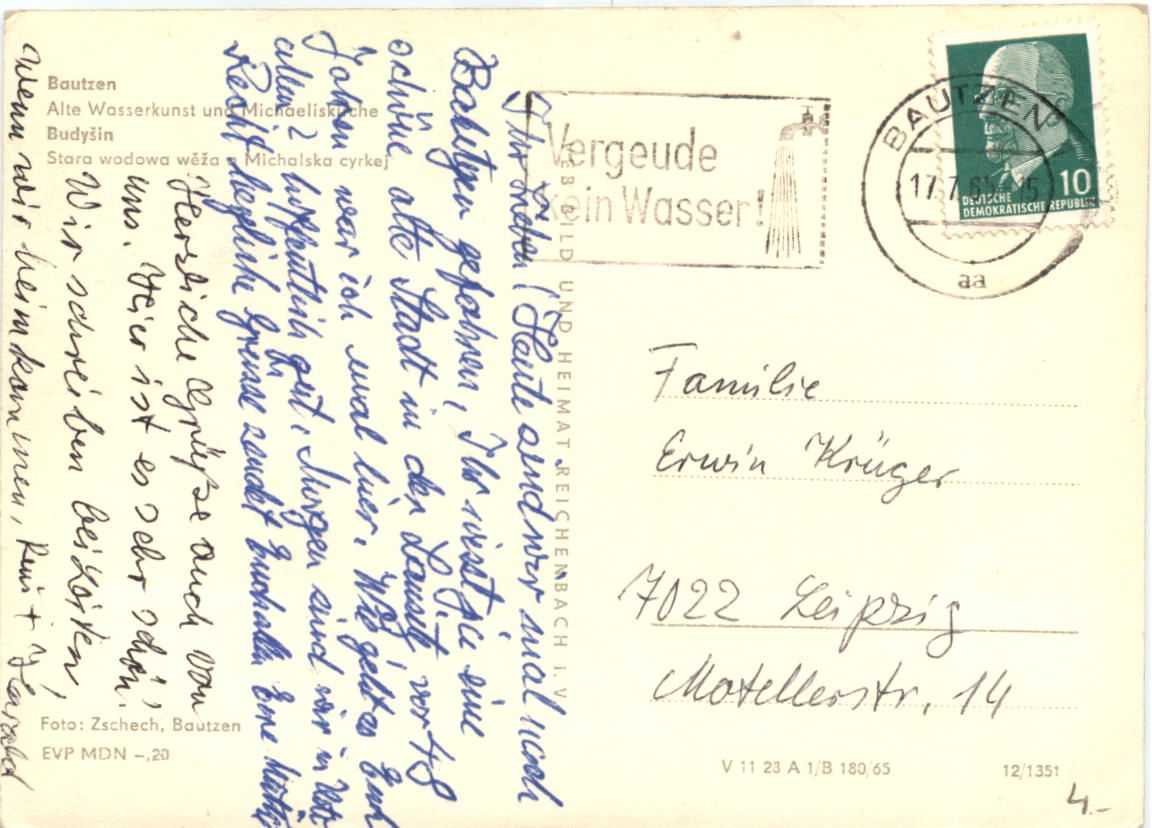 Bautzen
Alte Wasserkunst und Michaeliskirche
Budyšin
Stara wodowa wěža a Michalska cyrkej
Vergeude
kein Wasser!
BAUTZEN
17.7.6
aa
10
DEUTSCHE
DEMOKRATISCHE REPUBLIK
Ihr Lieben! Heute sind wir mal nach
Bautzen gefahren, Ihr wisst ja eine
schöne alte Stadt in der Lausitz vor 48
Jahren war ich mal hier. Wie geht es Euch
allen 2 hoffentlich gut. Morgen sind wir in
Recht herzliche Grüsse sendet Euch allen Eure
Herzliche Grüße auch von
uns. Hier ist es sehr schön.
Wir schreiben bei Zeiten,
wenn wir heimkommen,
BILD UND HEIMAT REICHENBACH i. V.
Familie
Erwin Krüger
7022 Leipzig
Motellerstr. 14
Foto: Zschech, Bautzen
EVP MDN –,20
V 11 28 A 1/B 180/65
12/1351
4.-